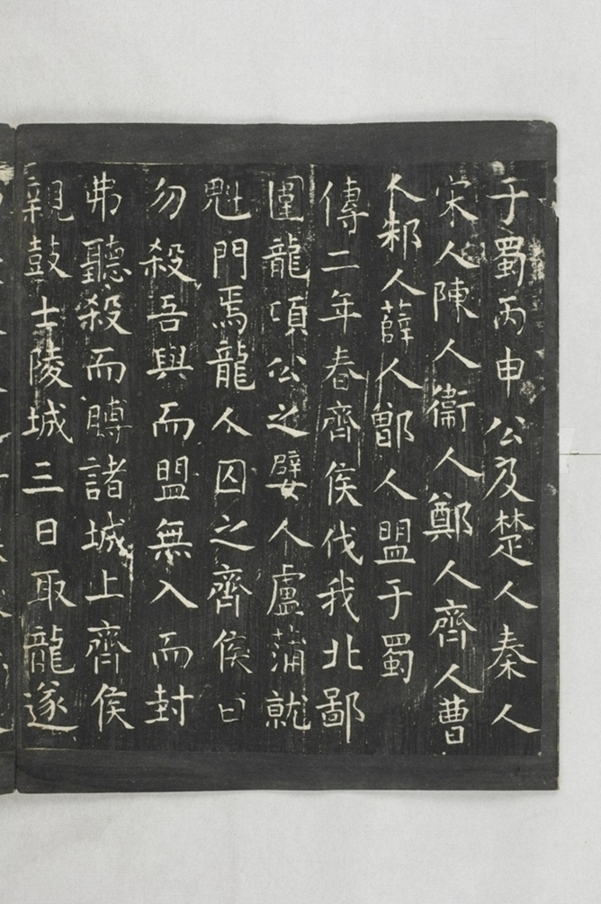 于蜀丙申公及楚人秦人
宋人陳人衞人鄭人齊人曹
人邾人薛人鄫人盟于蜀
傳二年春齊侯伐我北鄙
圍龍頃公之嬖人盧蒲就
魁門焉龍人囚之齊侯曰
勿殺吾與而盟無入而封
弗聽殺而膊諸城上齊侯
親鼓士陵城三日取龍遂